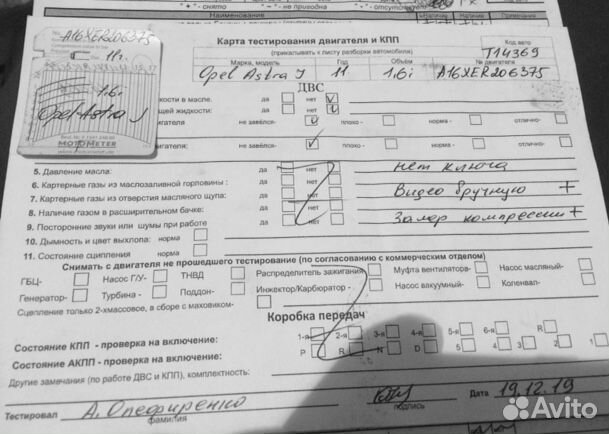 "+" - снято "-" - не приводна "*" - отсутствует
Наименование Наличие Наличие Примечания
№ A16XER206375
11г.
1.6i
Opel Astra J
MOTOMETER
Карта тестирования двигателя и КПП
(прикалывать к листу разборки автомобиля)
Код авто
T14369
Марка, модель Год Объём № двигателя
Opel Astra J 11 1.6i A16XER206375
ДВС
кости в масле. да нет V
щей жидкости: да нет V
вигателя не завёлся- V плохо - норма - отлично-
игателя: не завёлся- V плохо - норма - отлично-
5. Давление масла: да нет нет ключа
6. Картерные газы из маслозаливной горловины : да нет
7. Картерные газы из отверстия масляного щупа: да нет Видео вручную +
8. Наличие газов в расширительном бачке: да нет
9. Посторонние звуки или шумы при работе да нет Замер компрессии +
10. Дымность и цвет выхлопа: норма
11. Состояние сцепления норма
Снимать с двигателя не прошедшего тестирование (по согласованию с коммерческим отделом)
ГБЦ- Насос Г/У- ТНВД Распределитель зажигания Муфта вентилятора- Насос масляный-
Генератор- Турбина - Поддон- Инжектор/Карбюратор - Насос вакуумный- Коленвал-
Сцепление только 2-хмассовое, в сборе с маховиком-
Коробка передач
Состояние КПП - проверка на включение: 1-я 2-я 3-я 4-я 5-я 6-я R
Состояние АКПП - проверка на включение: P R N D 5 4 3 2 1
Другие замечания (по работе ДВС и КПП), комплектность:
Тестировал А. Олефиренко Дата 19.12.19
фамилия подпись
Avito